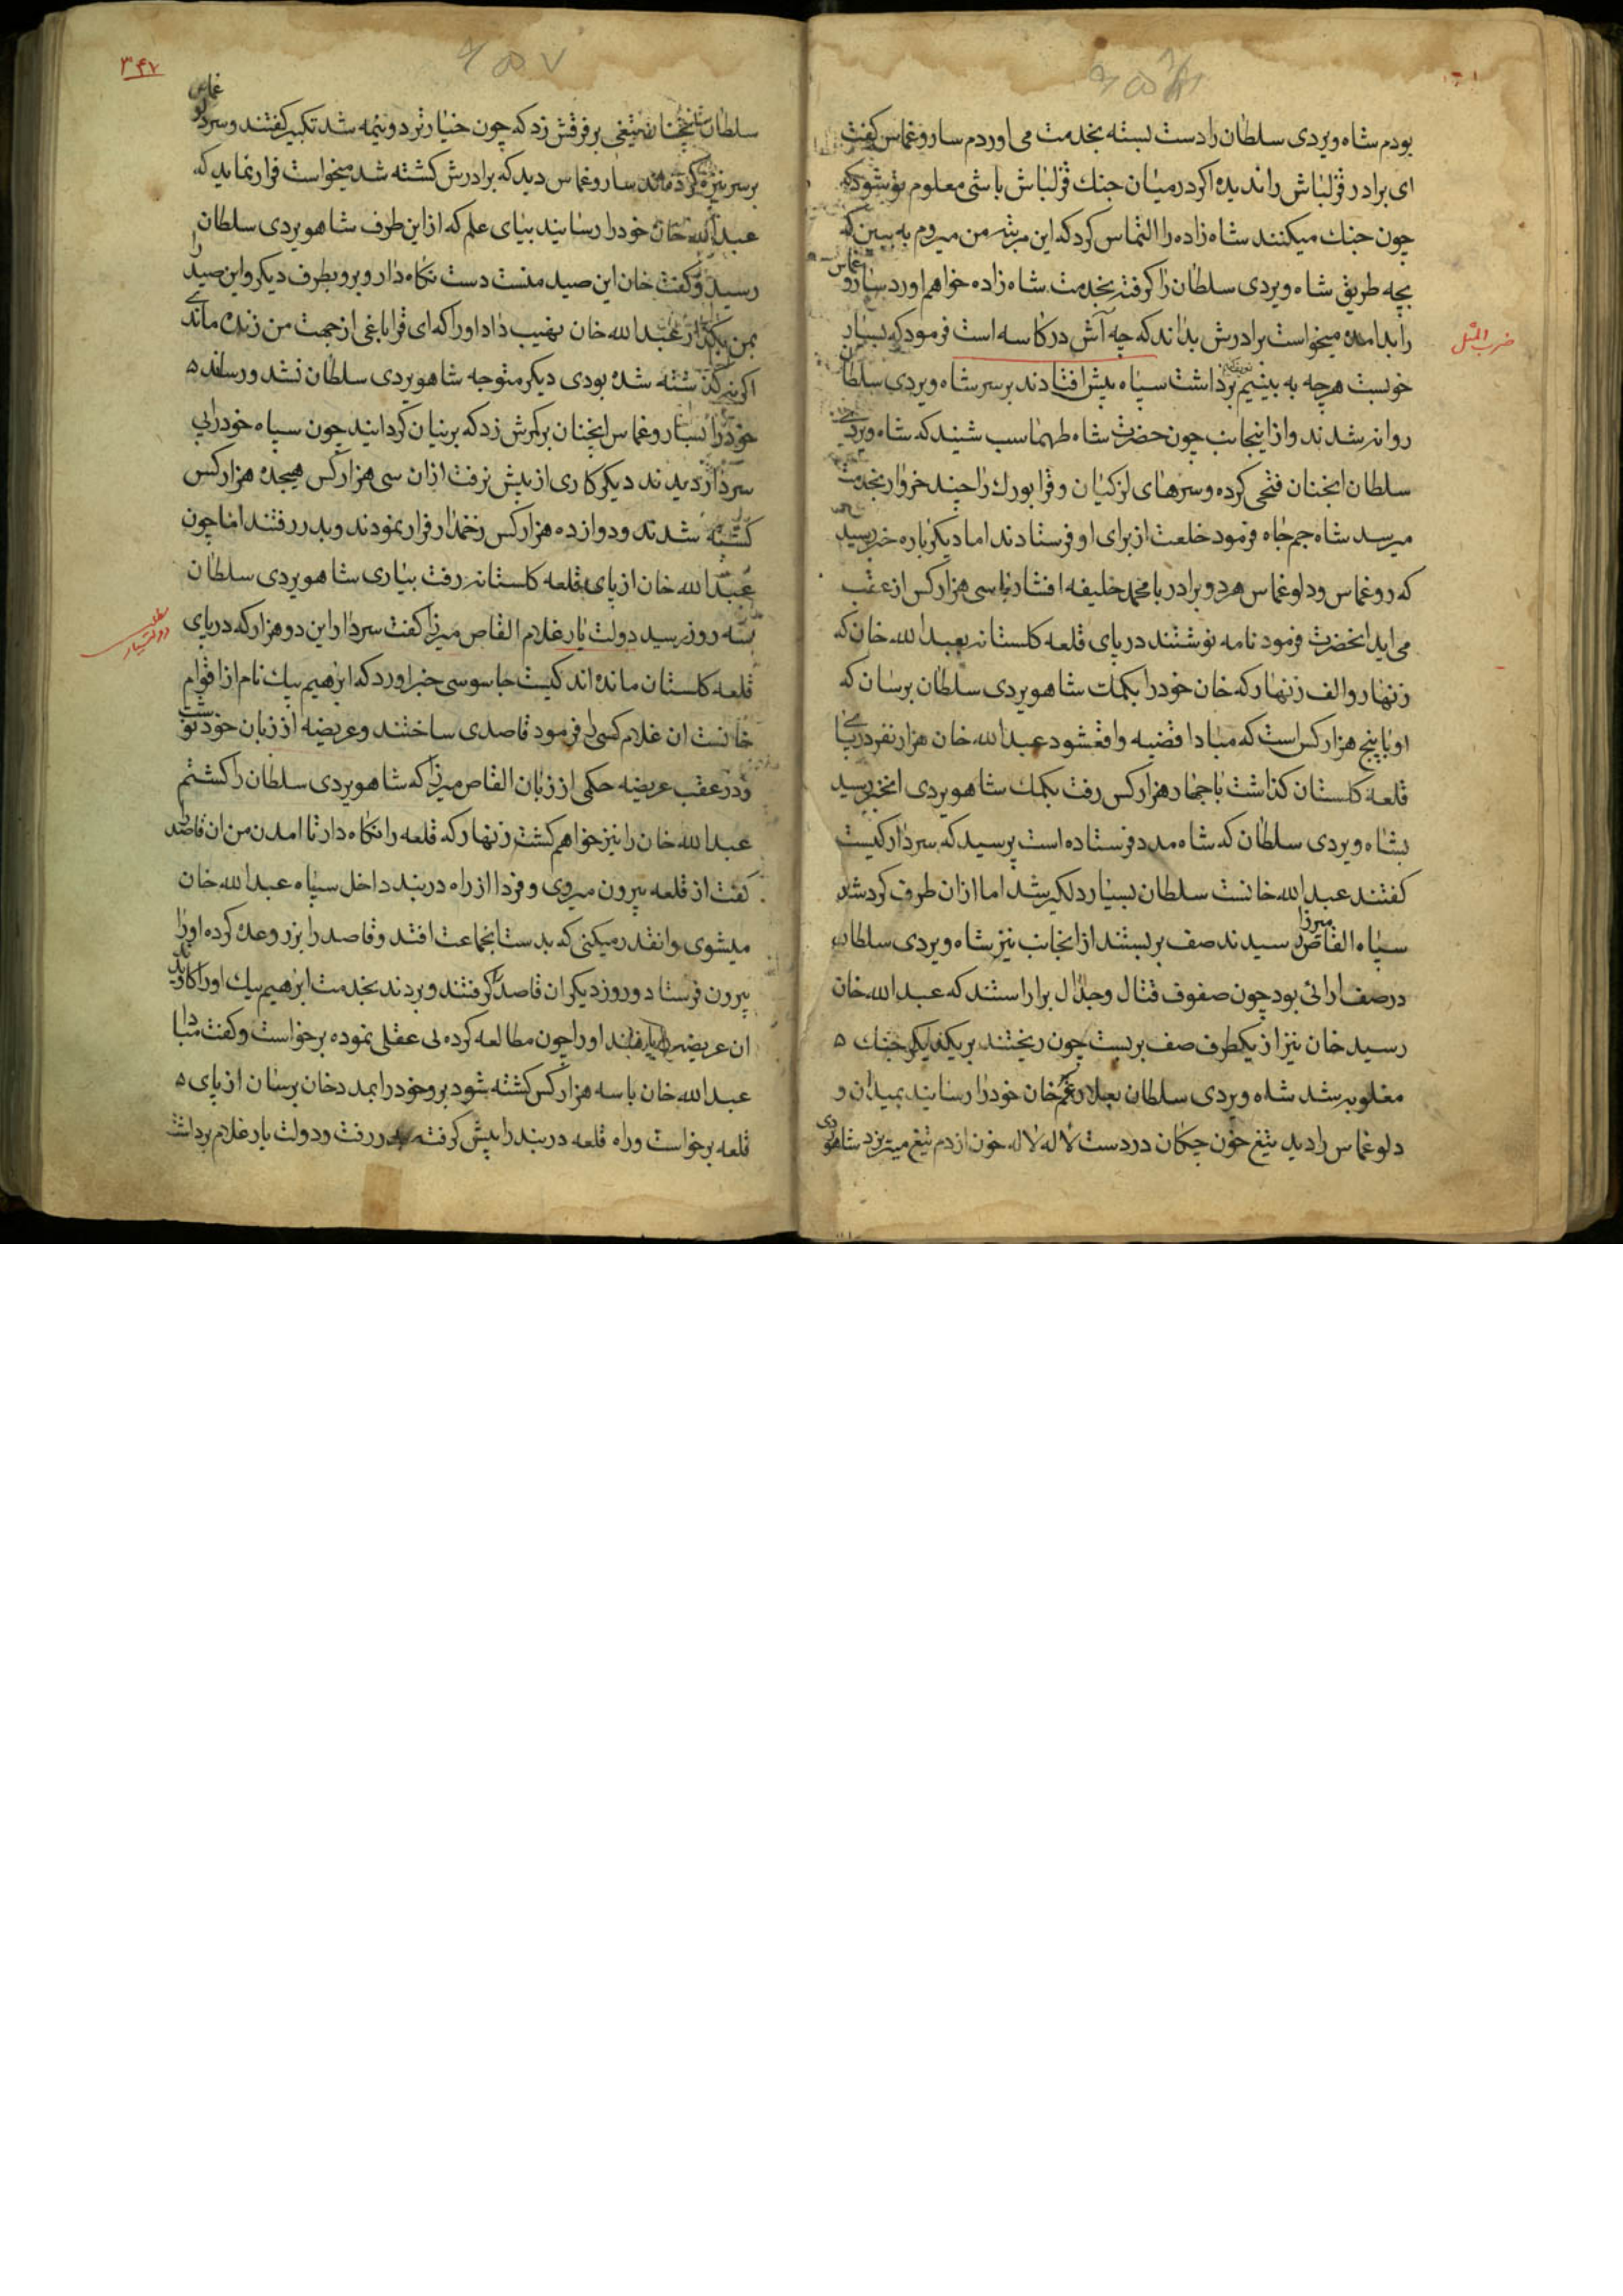 بودم شاه ویردی سلطان را دست بسته بخدمت می اوردم ساروغماس کفت
ای برادر قزلباش را ندیده اکر درمیان جنك قزلباش باشی معلوم تو شود که
چون جنك میکنند شاه زاده را التماس کرد که این مرتبه من میروم به بین که
بچه طریق شاه ویردی سلطان را کرفته بخدمت شاه زاده خواهم اورد سارو غماس
را بد امده میخواست برادرش بداند که چه آش در کاسه است فرمود که بسیار
ضرب المثل
خوبست هرچه به بینیم برداشت سپاه بیش افتادند بر سر شاه ویردی سلطان
روانه شدند و از اینجانب چون حضرت شاه طهماسب شنیند که شاه ویردی
سلطان انجنان فتحی کرده و سرهای لزکیان و قرابورك را چند خروار بخدمت
میرسد شاه جم جاه فرمود خلعت از برای او فرستادند اما دیکر باره خبر رسید
که روغماس و دلوغماس هر دو برادر با محمد خلیفه افشار با سی هزار کس از عقب
می اید انحضرت فرمود نامه نوشتند در پای قلعه کلستانه بعبدالله خان که
زنهار و الف زنهار که خان خود را بکمك شاهویردی سلطان برسان که
او با پنج هزار کس است که مبادا قضیه واقعشود عبدالله خان هزار نفر در پای
قلعه کلستان کذاشت با چهار هزار کس رفت بکمك شاهویردی اما خبر رسید
بشاه ویردی سلطان که شاه مدد فرستاده است پرسید که سردار کیست
کفتند عبدالله خانست سلطان بسیار دلکیر شد اما ازان طرف کرد شد
سپاه القاص میرزا رسیدند صف بر بستند از انجانب نیز شاه ویردی سلطان
در صف ارائی بود چون صفوف قتال و جدال براراستند که عبدالله خان
رسید خان نیز از یکطرف صف بر بست چون ریختند بر یکدیکر جنك
مغلوبه شد شاه ویردی سلطان خان خود را رسانید بمیدان و
دلوغماس را دید تیغ خون چکان در دست لاله لاله خون از دم تیغ میریزد شاهویردی
۳۴۷
سلطان انچنان تیغی بر فرقش زد که چون خیار تر دو نیمه شد تکبیر کفتند و سر دلو غماس
بر سر نیزه کرد ساروغماس دید که برادرش کشته شد میخواست فرار نماید که
عبدالله خان خود را رسانید بپای علم که از این طرف شاهویردی سلطان
رسید و کفت خان این صید منست دست نکاه دار و برو بطرف دیکر و این صید را
بمن بکذار عبدالله خان نهیب داد او را که ای قراباغی از جهت من زنده ماندی
اکرنه کشته شده بودی دیکر متوجه شاهویردی سلطان نشد و رساند
خود را بساروغماس انچنان بر کمرش زد که بر نیان کردانید چون سپاه خود را بی
سردار دیدند دیکر کاری از پیش نرفت ازان سی هزار کس هیجده هزار کس
کشته شدند و دوازده هزار کس زخمدار فرار نمودند و بدر رفتند اما چون
عبدالله خان از پای قلعه کلستانه رفت بیاری شاهویردی سلطان
سه روز رسید دولت یار غلام القاص میرزا کفت سردار این دو هزار که در پای
دولتیار
قلعه کلستان مانده اند کیست جاسوسی خبر اورد که ابرهیم بیك نام از اقوام
خانست ان غلام کسی را فرمود قاصدی ساختند و عریضه از زبان خود نوشت
و در عقب عریضه حکمی از زبان القاص میرزا که شاهویردی سلطان را کشتم
عبدالله خان را نیز خواهم کشت زنهار که قلعه را نکاه دار تا امدن من ان قاصد را
کفت از قلعه بیرون میروی و فردا از راه دربند داخل سپاه عبدالله خان
میشوی و انقدر میکنی که بدست انجماعت افتد و قاصد را بزر وعده کرده او را
بیرون فرستاد و روز دیکر ان قاصد را کرفتند و بردند بخدمت ابرهیم بیك
ان عریضه را او را چون مطالعه کرده بی عقلی نموده برخواست و کفت مبادا
عبدالله خان با سه هزار کس کشته شود برو خود را بمدد خان برسان از پای
قلعه برخواست و راه قلعه دربند را پیش کرفته در رفت و دولت یار غلام برداشت